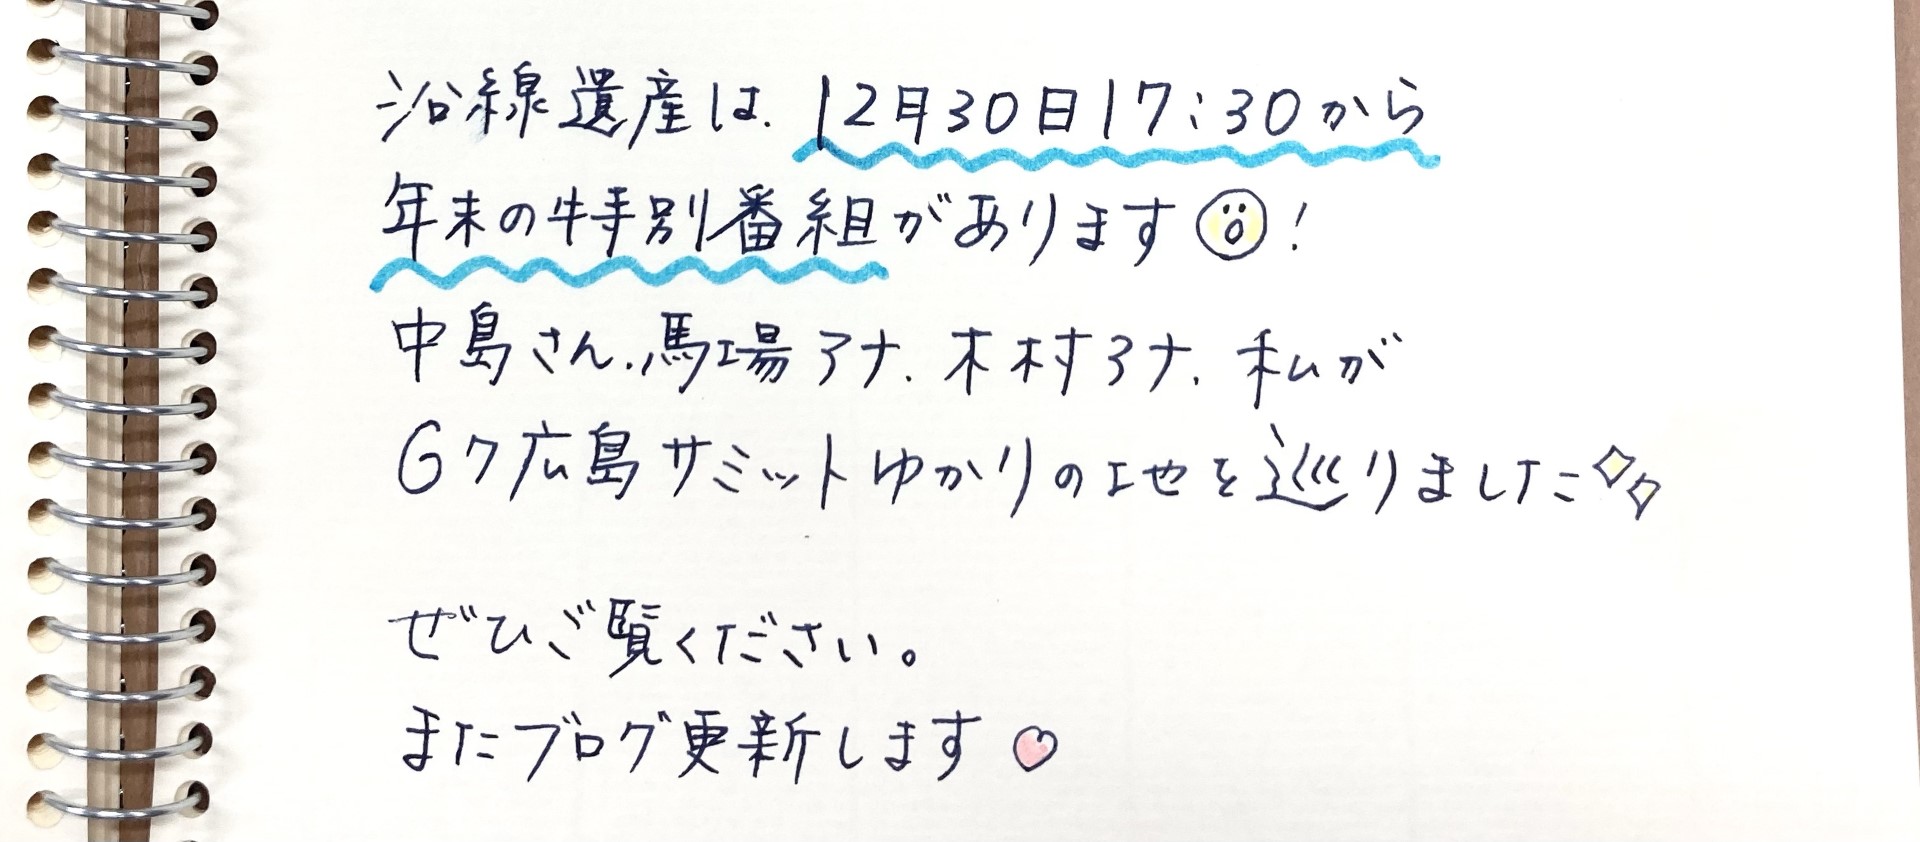 沿線遺産は、12月30日17:30から
年末の特別番組があります!
中島さん、馬場アナ、木村アナ、私が
G7広島サミットゆかりの地を巡りました
ぜひご覧ください。
またブログ更新します